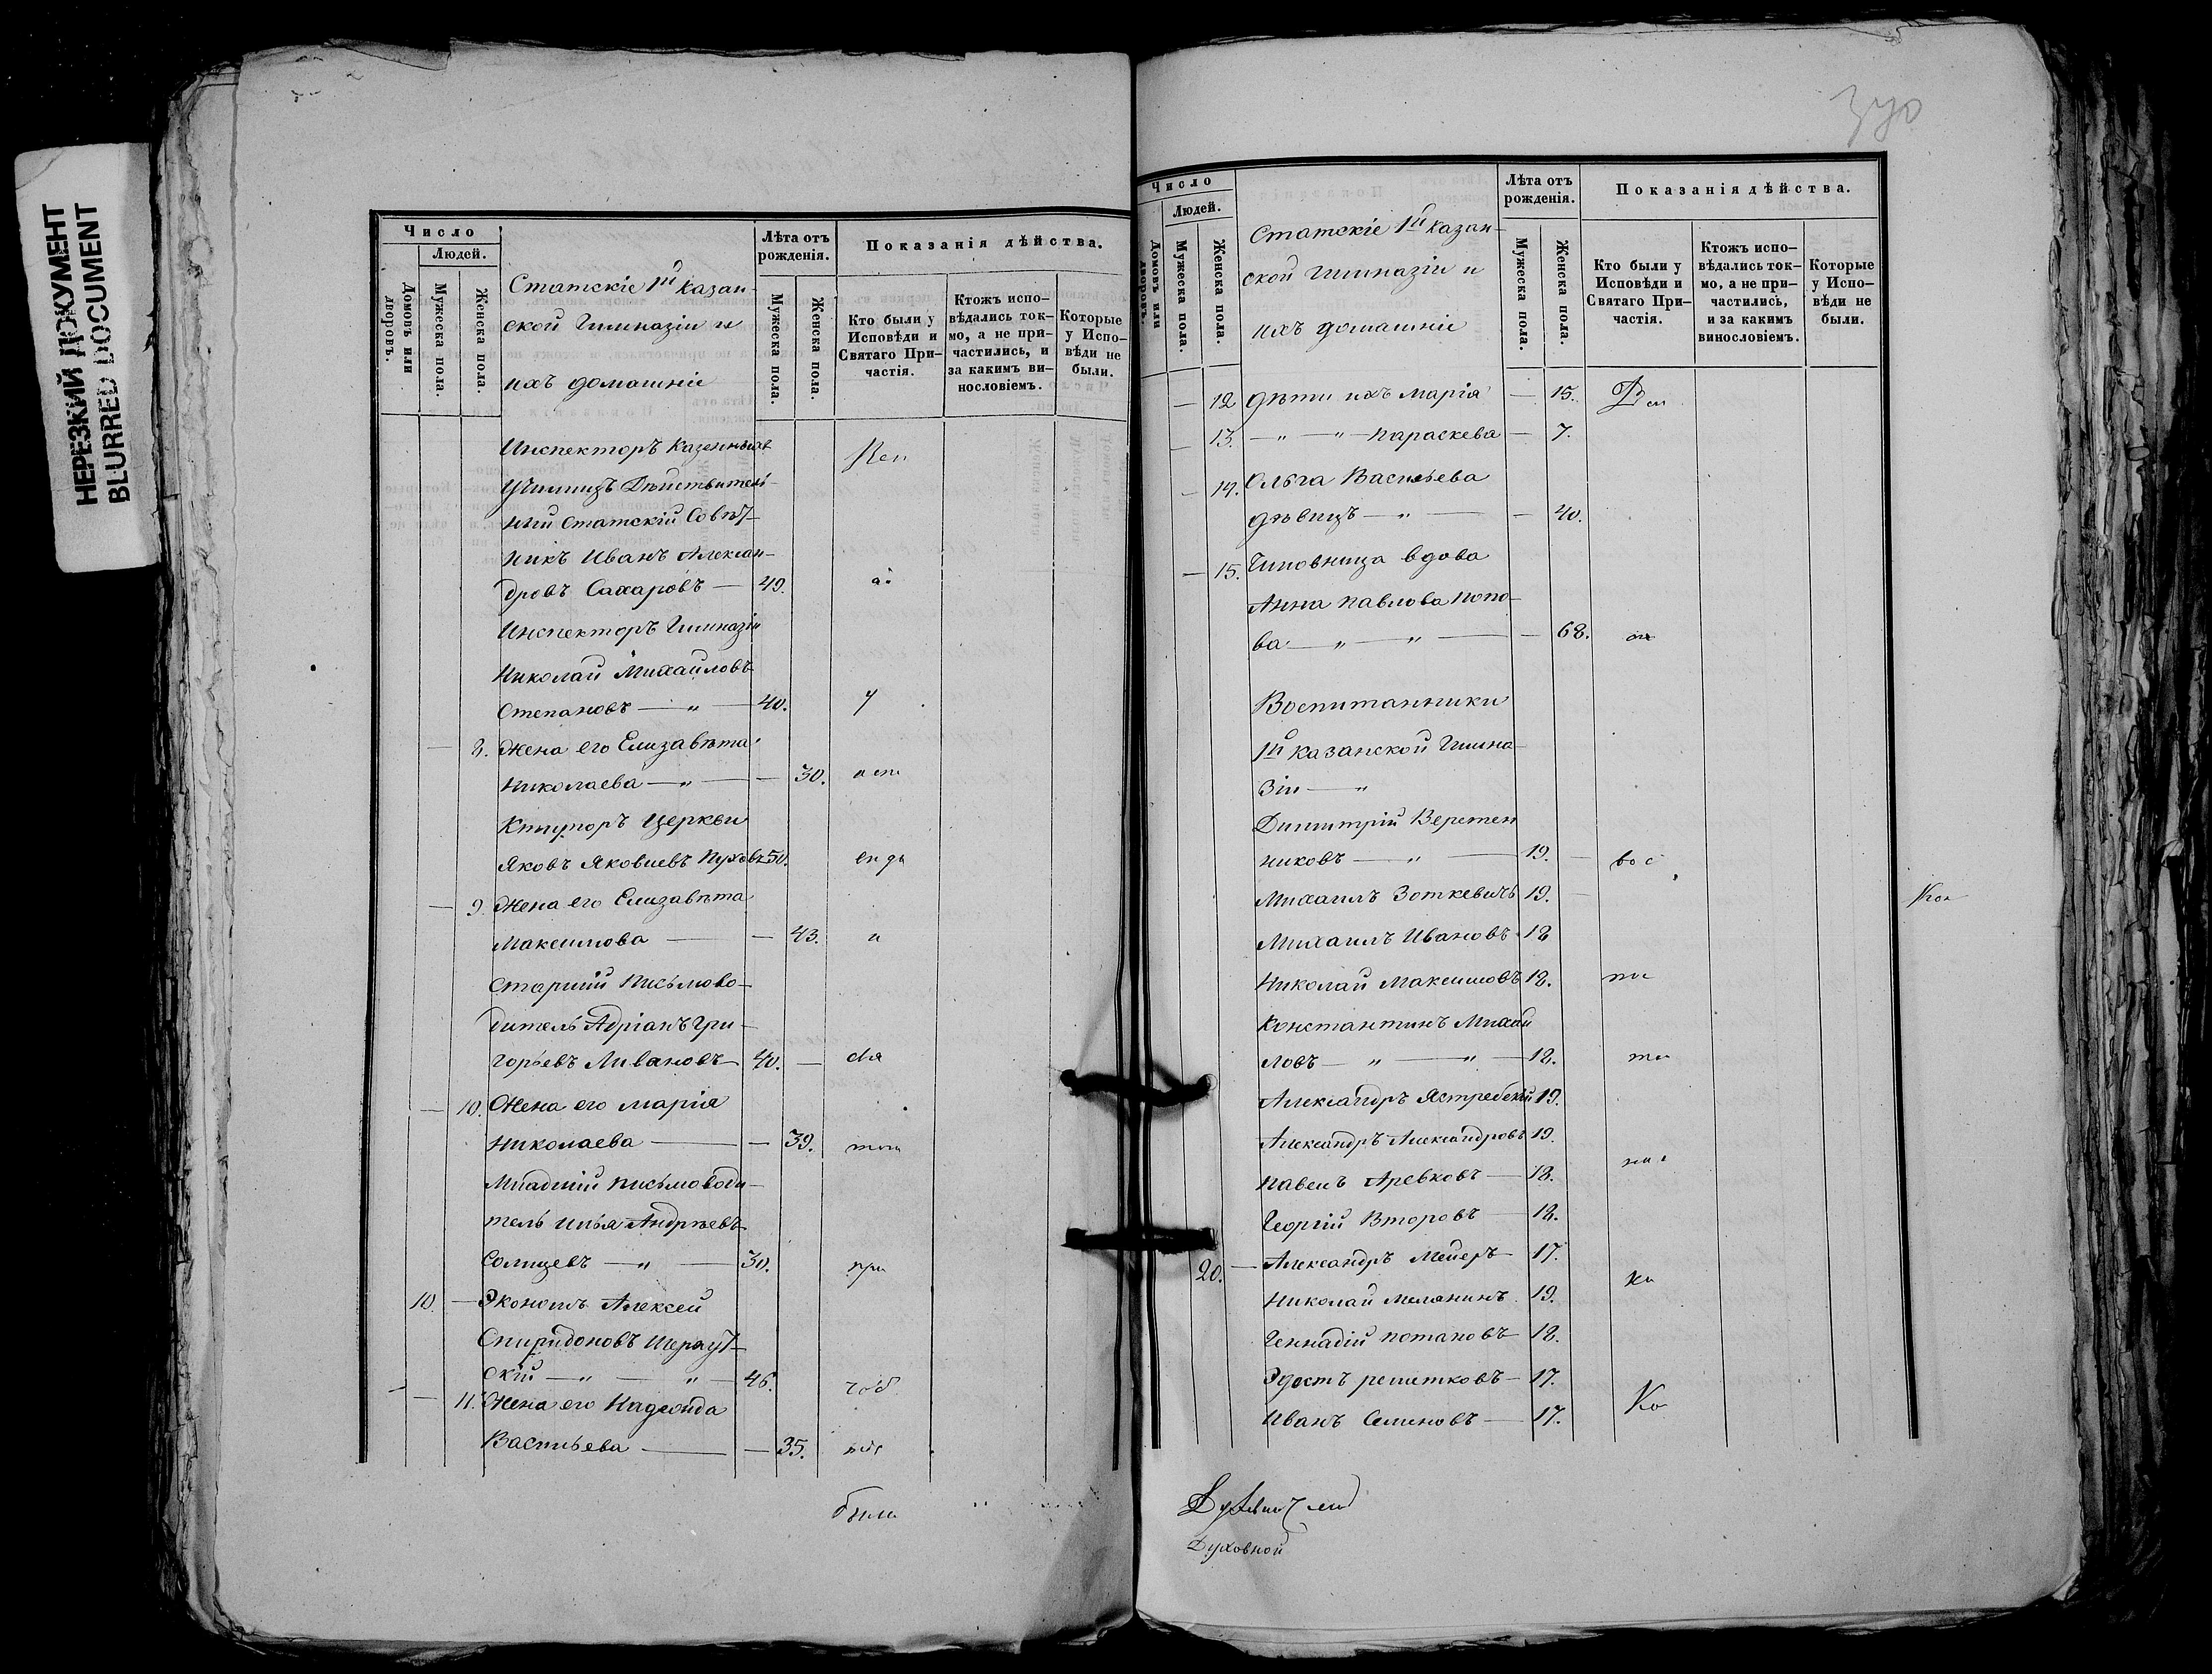 НЕРЕЗКИЙ ДОКУМЕНТ
BLURRED DOCUMENT
Число
Людей.
Домовъ или дворовъ.
Мужеска пола.
Женска пола.
Статскіе 1й казан-
ской Гимназіи и
ихъ домашніе
Лѣта отъ рожденія.
Мужеска пола.
Женска пола.
Показанія дѣйства.
Кто были у Исповѣди и Святаго При-частія.
Ктожъ испо-вѣдались ток-мо, а не при-частились, и за какимъ ви-нословіемъ.
Которые у Испо-вѣди не были.
Инспекторъ Казенныхъ
Училищъ Дѣйствитель-
ный Статскій Совѣт-
никъ Иванъ Алексан-
дровъ Сахаровъ — 49.
Инспекторъ Гимназіи
Николай Михайловъ
Степановъ — " — 40. у
— 8. Жена его Елизавѣта
Николаева — " — — 30.
Ктиторъ Церкви
Яковъ Яковлевъ Пуховъ 50.
— 9. Жена его Елизавѣта
Максимова — — 43. и
Старшій Письмово-
дитель Адріанъ Гри-
горьевъ Ливановъ 40. — свя
— 10. Жена его Марія
Николаева — — 39.
Младшій письмоводи-
тель Илья Андреевъ
Солнцевъ — " — 30. при
10. — Экономъ Алексей
Спиридоновъ Шераут-
скій — " — " — 46.
— 11. Жена его Надежда
Васильева — — 35.
были
Число
Людей.
Домовъ или дворовъ.
Мужеска пола.
Женска пола.
Статскіе 1й казан-
ской Гимназіи и
ихъ домашніе
Лѣта отъ рожденія.
Мужеска пола.
Женска пола.
Показанія дѣйства.
Кто были у Исповѣди и Святаго При-частія.
Ктожъ испо-вѣдались ток-мо, а не при-частились, и за какимъ винословіемъ.
Которые у Испо-вѣди не были.
— 12 дѣти ихъ Марія — 15.
— 13. — " — " — Параскева — 7.
— 14. Ольга Васильева
дѣвица — " — — 40.
— 15. Чиновница вдова
Анна Павлова Попо-
ва — " — " — — 68.
Воспитанники
1й казанской Гимна-
зіи — "
Димитрій Веретен
никовъ — " — 19. — вос
Михаилъ Зоткевичъ 19. —
Михаилъ Ивановъ 18
Николай Максимовъ 18. пи
Константинъ Михай
ловъ — " — " — 18. та
Александръ Ястребскій 19.
Александръ Александровъ 19.
Павелъ Аревковъ — 18.
Георгій Второвъ — 18.
20. — Александръ Мейеръ — 17.
Николай Меланинъ. 19. ки
Геннадій Потаповъ — 18.
Эдестъ Решетковъ — 17.
Иванъ Семеновъ — 17. Ко
Духовной